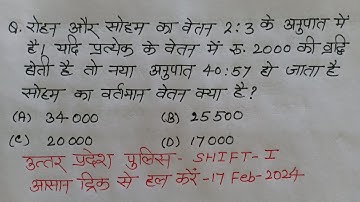 Q. रोहन और सोहम का वेतन 2:3 के अनुपात में
है। यदि प्रत्येक के वेतन में रु. 2000 की वृद्धि
होती है तो नया अनुपात 40:57 हो जाता है
सोहम का वर्तमान वेतन क्या है?
(A) 34000 (B) 25500
(C) 20000 (D) 17000
उत्तर प्रदेश पुलिस - SHIFT - I
आसान ट्रिक से हल करें - 17 Feb - 2024